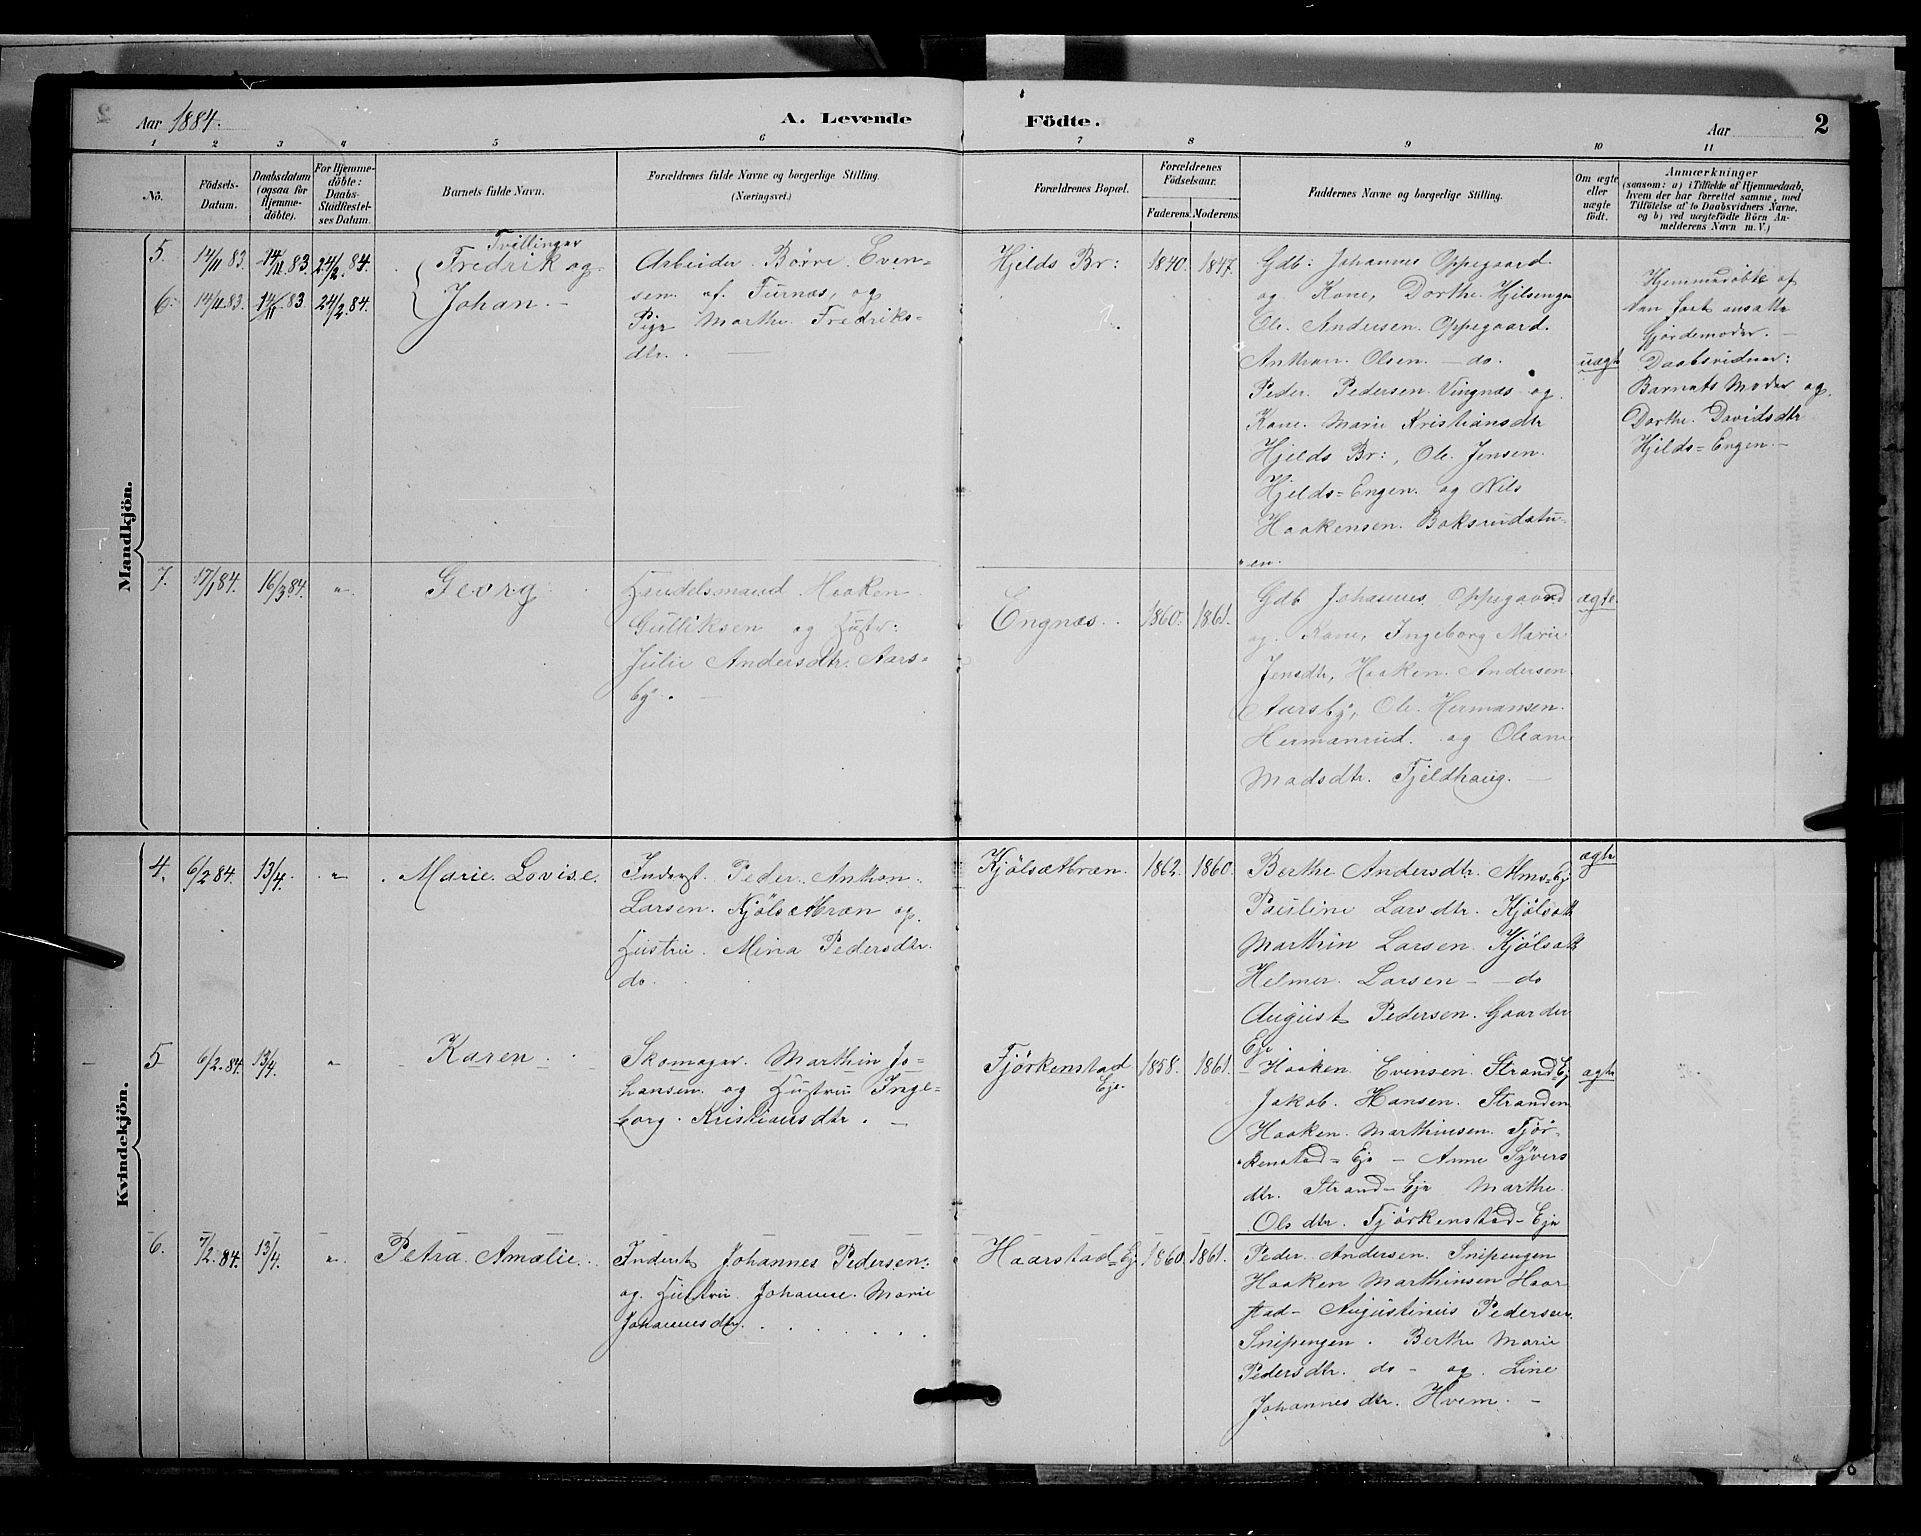 Aar 1884.
A. Levende
Födte.
Aar
2
1 2 3 4 5 6 7 8 9 10 11
No.
Födsels-
Datum.
Daabsdatum
(ogsaa for
Hjemme-
döbte).
For Hjemme-
döbte:
Daabs-
Stadfæstel-
ses Datum.
Barnets fulde Navn.
Forældrenes fulde Navne og borgerlige Stilling.
(Næringsvei.)
Forældrenes Bopæl.
Forældrenes
Födselsaar.
Faderens. Moderens.
Faddernes Navne og borgerlige Stilling.
Om ægte
eller
uægte
födt.
Anmærkninger
(saasom: a) i Tilfælde af Hjemmedaab,
hvem der har forrettet samme, med
Tilföielse af to Daabsvidners Navne,
og b) ved uægtefödte Börn An-
melderens Navn m. V.)
Mandkjön.
5. 14/11 83. 14/11 83. 24/2. 84.
6. 14/11 83. 14/11 83. 24/2. 84.
Tvillinger
Fredrik og
Johan. –
Arbeider Börre Even-
sen af Furnæs, og
Pige Marthe Fredriks-
dtr. –
Hjelds Br: 1840. 1847.
Gdb: Johannes Oppegaard
og Kone, Dorthe Hjelsengen
Ole Andersen Oppegaard.
Anthon Olsen – do.
Peder Pedersen Vingnæs og
Kone Marie Kristiansdtr
Hjelds Br:, Ole Jensen
Hjelds=Engen og Nils
Haakensen Baksrudstu-
en.
uægte
Hjemmedöbte af
den fast ansatte
Gjordemoder. –
Daabsvidner:
Barnets Moder og
Dorthe Davidsdtr
Hjelds=Engen –
7. 17/1 84. 16/3 84. "
Georg
Handelsmand Haaken
Gulliksen og Hustr:
Julie Andersdtr. Aars-
by. –
Engnæs. 1860. 1861.
Gdb Johannes Oppegaard
og Kone, Ingeborg Marie
Jensdtr, Haaken Andersen
Aarsby, Ole Hermansen
Hermanrud og Oleane
Madsdtr. Fjeldhaug. –
ægte
Kvindekjön.
4. 6/2 84. 13/4. "
Marie Lovise
Inderst Peder Anthon
Larsen Kjölsætbræn og
Hustru Mina Pedersdtr
do.
Kjölsætbræn. 1862. 1860.
Berthe Andersdtr. Alms=Eje
Pauline Larsdtr. Kjölsæt
Marthin Larsen Kjölsæt
Helmer Larsen – do
August Pedersen Gaarder
Eje
ægte
5 6/2. 84. 13/4. "
Karen
Skomager Marthin Jo-
hansen og Hustru Inge-
borg Kristiansdtr. –
Fjörkenstad
Eje. 1858. 1861.
Haaken Evensen Strand=Ej
Jakob Hansen Stranden
Haaken Marthinsen Fjör-
kenstad=Eje – Anne Syvers
dtr. Strand=Eje Marthe
Olsdtr. Fjörkenstad=Eje
ægte
6. 7/2. 84. 13/4. "
Petra Amalie
Inderst Johannes Pedersen
og Hustru Johanne Marie
Johannesdtr.
Haarstad=Ej 1860. 1861.
Peder Andersen Snipengen
Haaken Marthinsen Haar-
stad – Augustinus Pedersen
Snipengen. Berthe Marie
Pedersdtr. do – og Line
Johannesdtr. Hvem. –